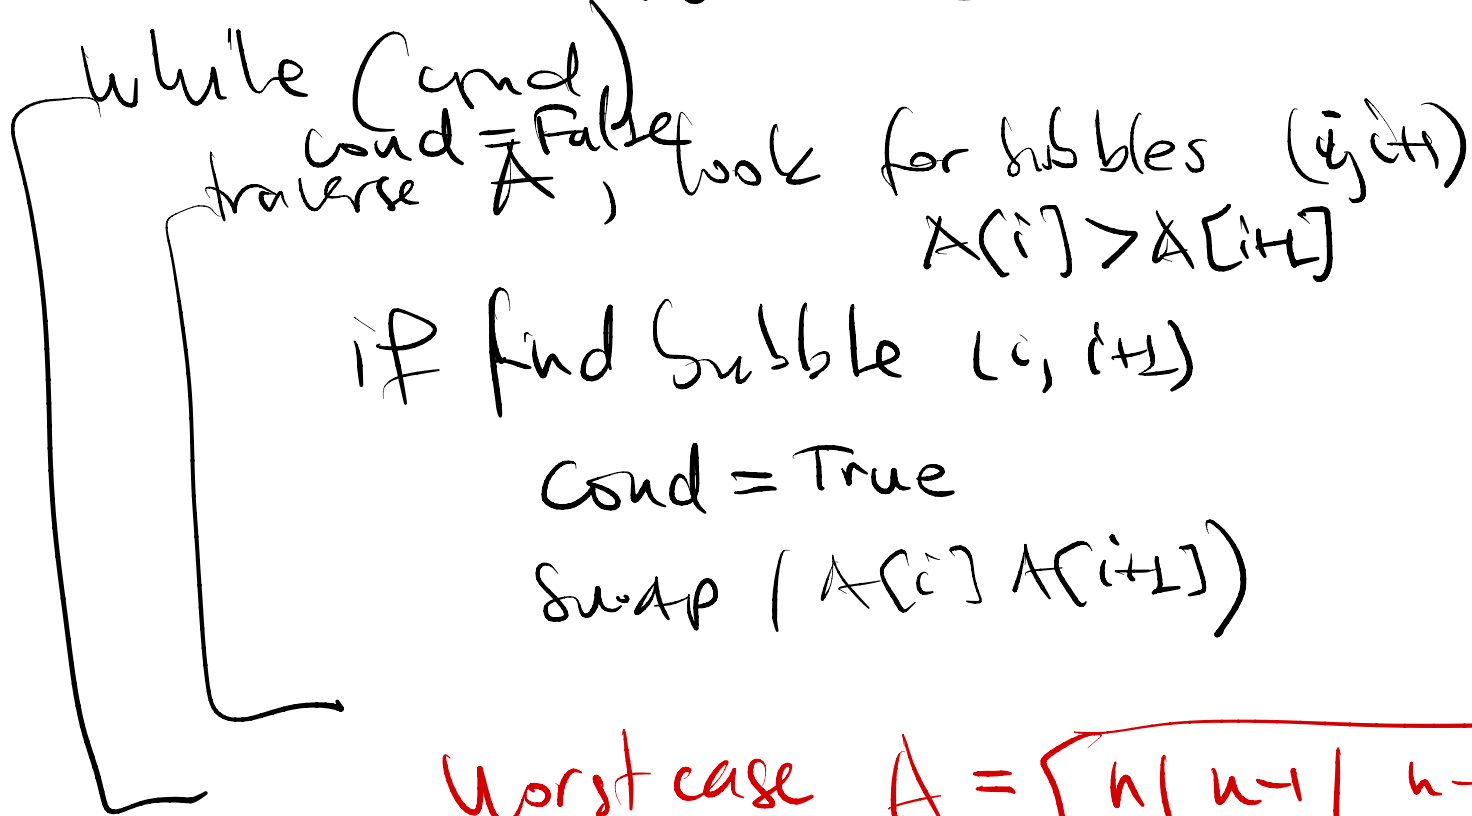 while (cond)
cond = False
traverse A, look for bubbles (i, i+1)
A[i] > A[i+1]
if find bubble (i, i+1)
cond = True
swap (A[i] A[i+1])
Worst case A = [n | n-1 | n-